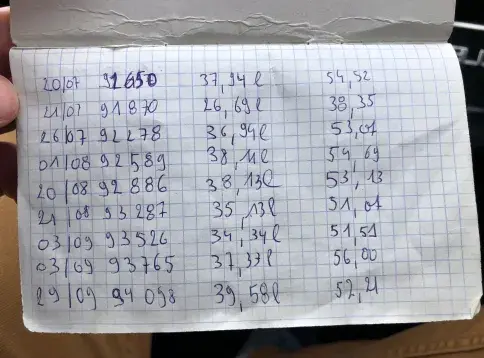 20/07 91650 37,94l 54,52
21/07 91870 26,69l 38,35
26/07 92278 36,94l 53,07
01/08 92589 38,11l 54,69
20/08 92886 38,13l 53,13
21/08 93287 35,13l 51,07
03/09 93526 34,34l 51,51
03/09 93765 37,37l 56,00
29/09 94098 39,58l 57,21